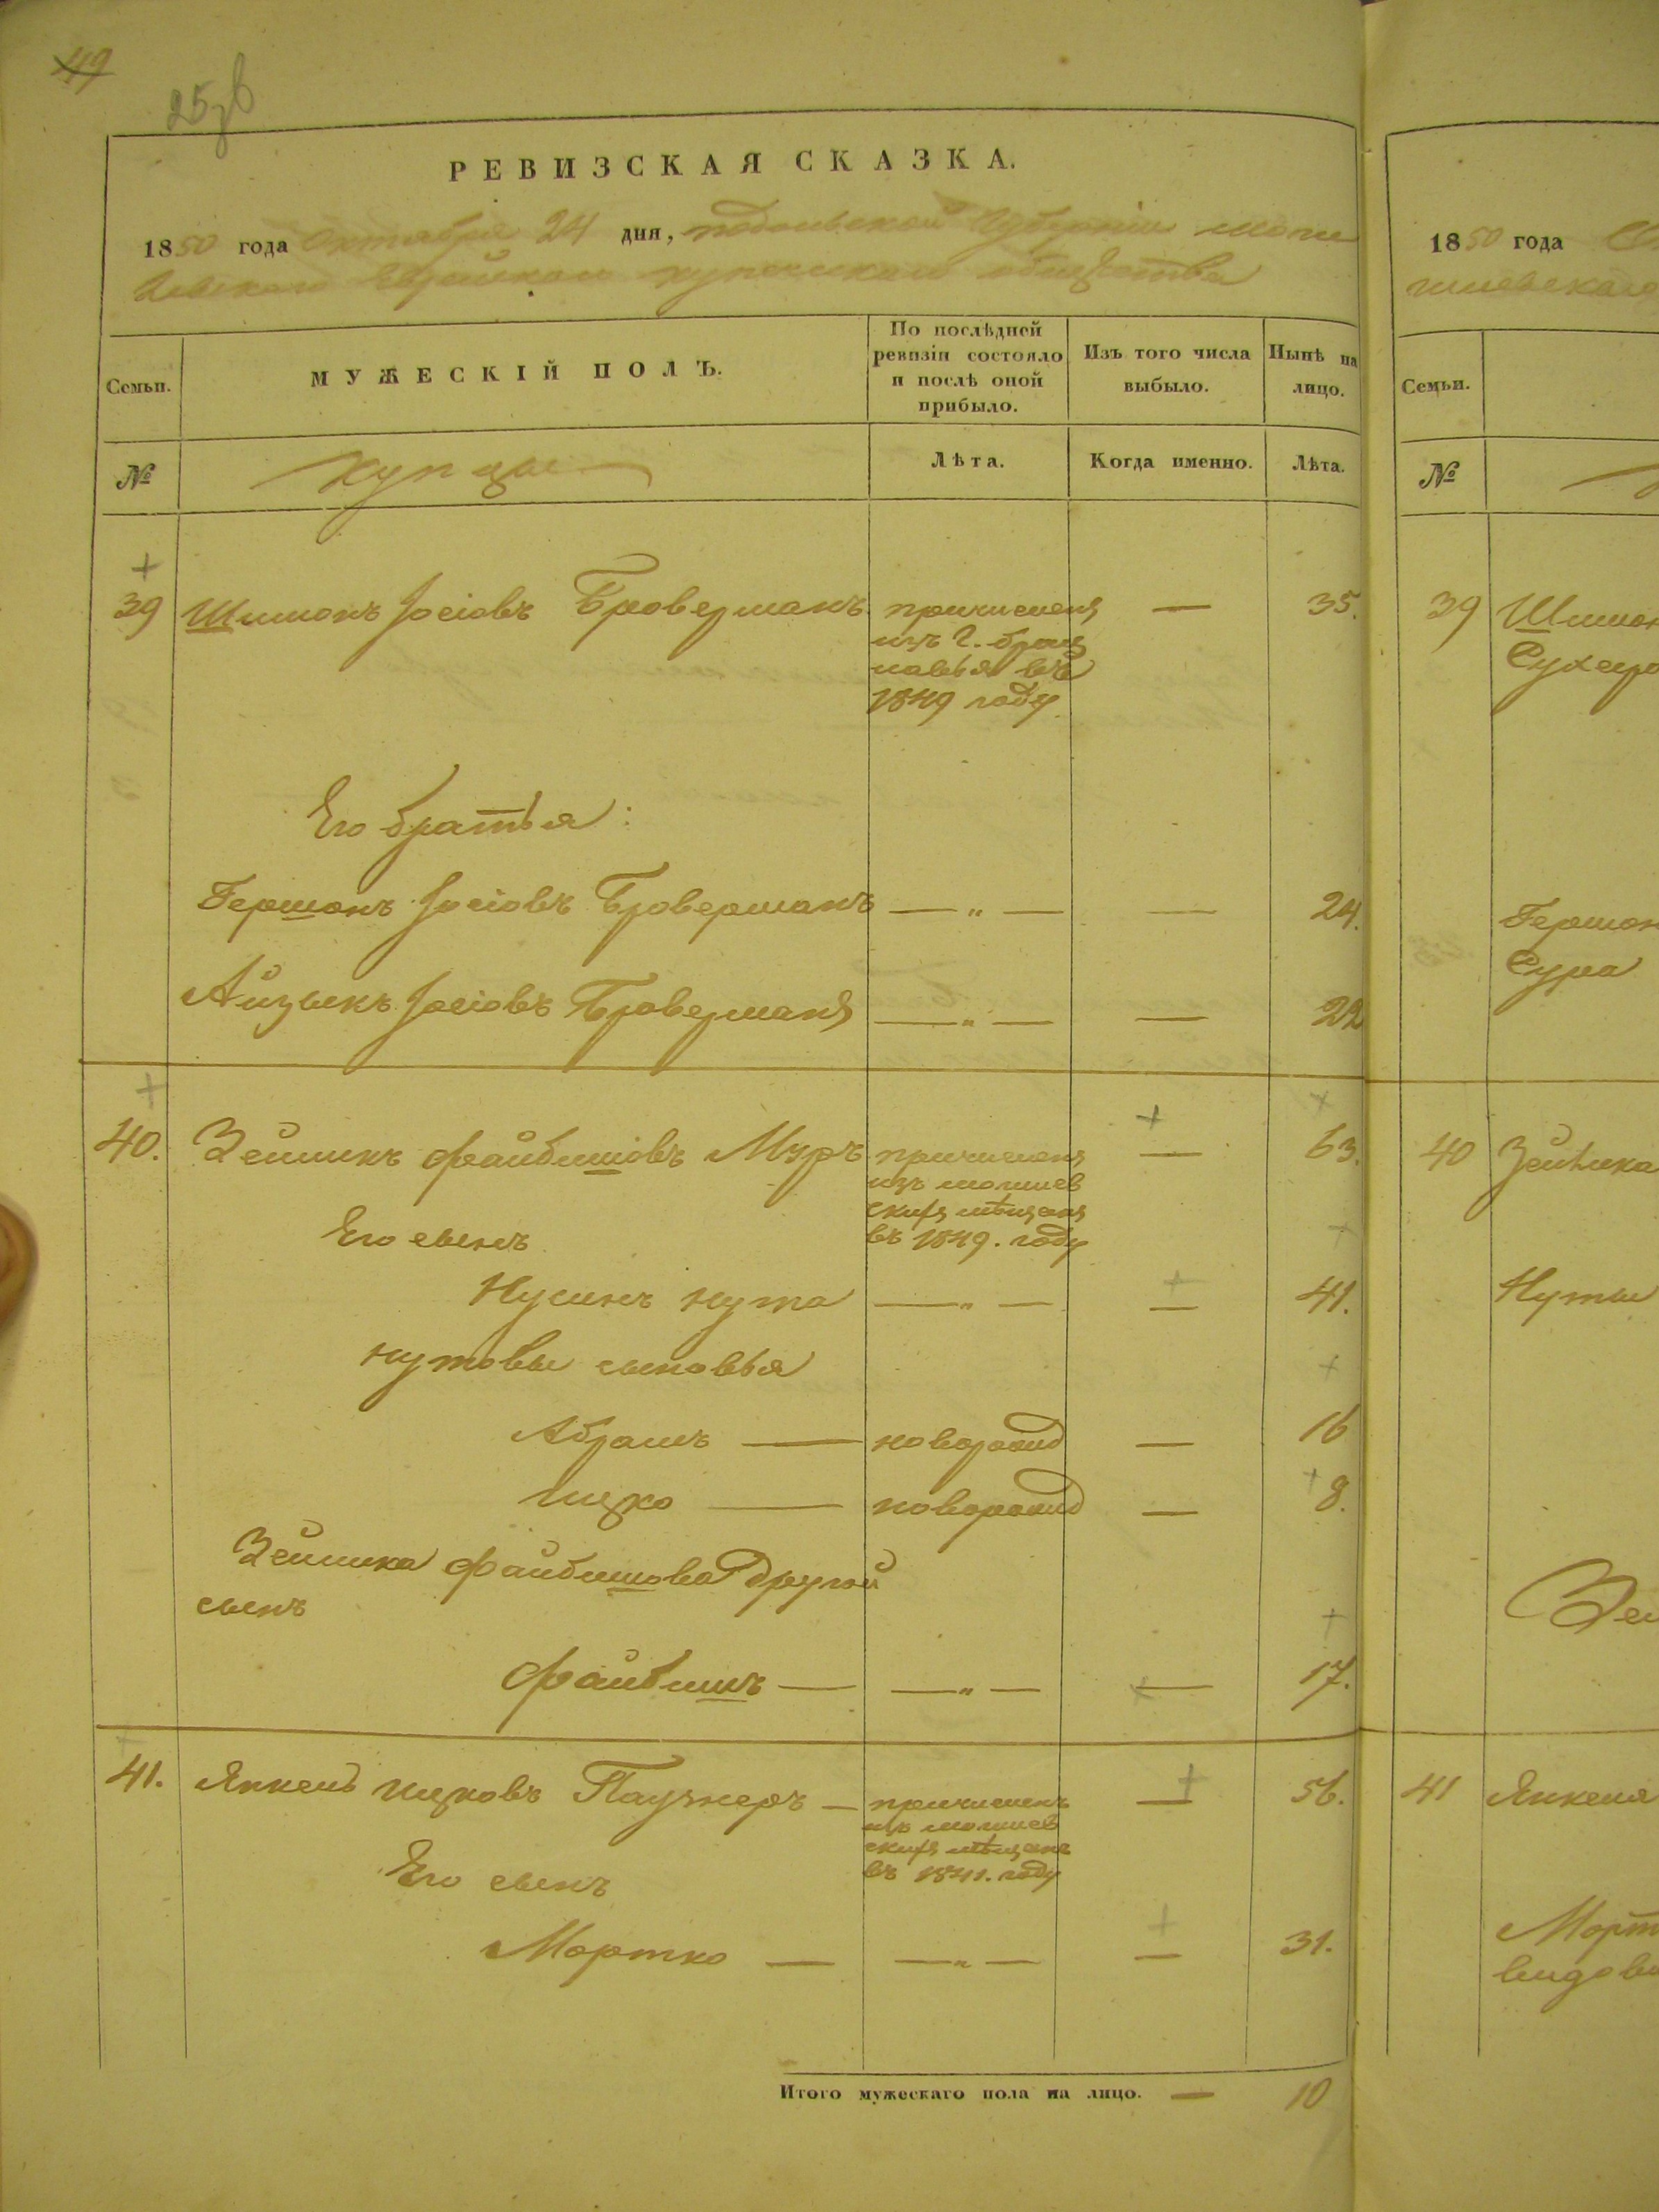 49
25зв
РЕВИЗСКАЯ СКАЗКА.
1850 года Октября 24 дня, подольской Губерніи моги
левскаго Еврейскаго купеческаго общества
Семьи.
МУЖЕСКІЙ ПОЛЪ.
По послѣдней
ревизіи состояло
и послѣ оной
прибыло.
Изъ того числа
выбыло.
Нынѣ на
лицо.
№
купцы
Лѣта.
Когда именно.
Лѣта.
39 Шимонъ Іосіовъ Броверманъ причисленъ — 35.
изъ г. брац
лавля въ
1849 году
Его братья:
Гершонъ Іосіовъ Броверманъ — „ — — 24.
Айзыкъ Іосіовъ Броверманъ — „ — — 22
40. Зейликъ Файбишовъ Муръ причисленъ — 63.
изъ могилев
скихъ мѣщанъ
въ 1849. году
Его сынъ
Нусинъ нута — „ — — 41.
нутовы сыновья
Абрамъ — новорожд — 16
Ицко — новорожд — 8.
Зейлика Файбишова другой
сынъ
Файбишъ — — „ — — 17.
41. Янкель ицковъ Паузнеръ — причисленъ — 56.
изъ могилев
скихъ мѣщанъ
въ 1841. году
Его сынъ
Мортко — — „ — — 31.
Итого мужескаго пола на лицо. — 10
1850 года
гилевскаго
Семьи.
№
39 Шимон
Сухеро
Гершон
Сура
40 Зейлика
Нуты
Зей
41 Янкеля
Морт